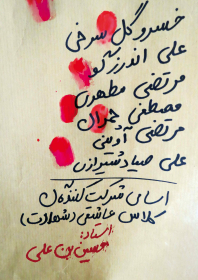 خسرو گل سرخی
علی اندرزگو
مرتضی مطهری
مصطفی چمران
مرتضی آوینی
علی صیاد شیرازی
اسامی شرکت کنندگان
کلاس عاشقی (شهادت)
استاد:
حسین بن علی